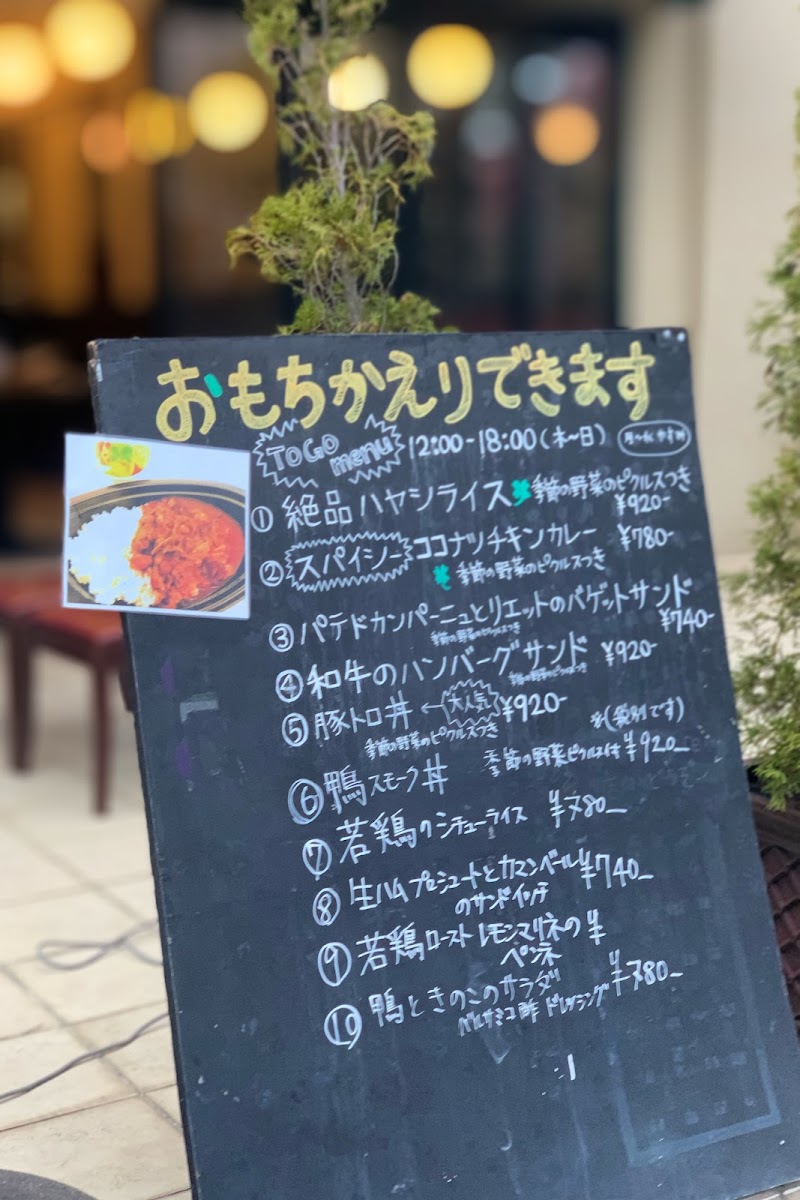 おもちかえりできます
TO GO menu 12:00-18:00(木〜日)
① 絶品ハヤシライス 季節の野菜のピクルスつき
¥920-
② スパイシーココナッツチキンカレー ¥780-
季節の野菜のピクルスつき
③ パテドカンパーニュとリエットのバゲットサンド
季節の野菜のピクルスつき ¥740-
④ 和牛のハンバーグサンド ¥920-
季節の野菜のピクルスつき
⑤ 豚トロ丼 ←大人気 ¥920-
季節の野菜のピクルスつき ※(袋別です)
⑥ 鴨スモーク丼 季節の野菜ピクルス付 ¥920-
⑦ 若鶏のシチューライス ¥780-
⑧ 生ハムプロシュートとカマンベール ¥740-
のサンドイッチ
⑨ 若鶏ロースト レモンマリネの ¥
ペンネ
⑩ 鴨ときのこのサラダ ¥780-
バルサミコ酢 ドレッシング